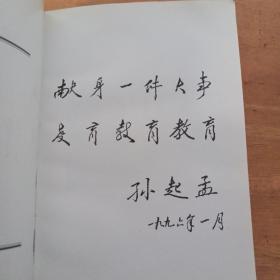 献身一件大事
育教育教育
孙起孟
一九九六年一月